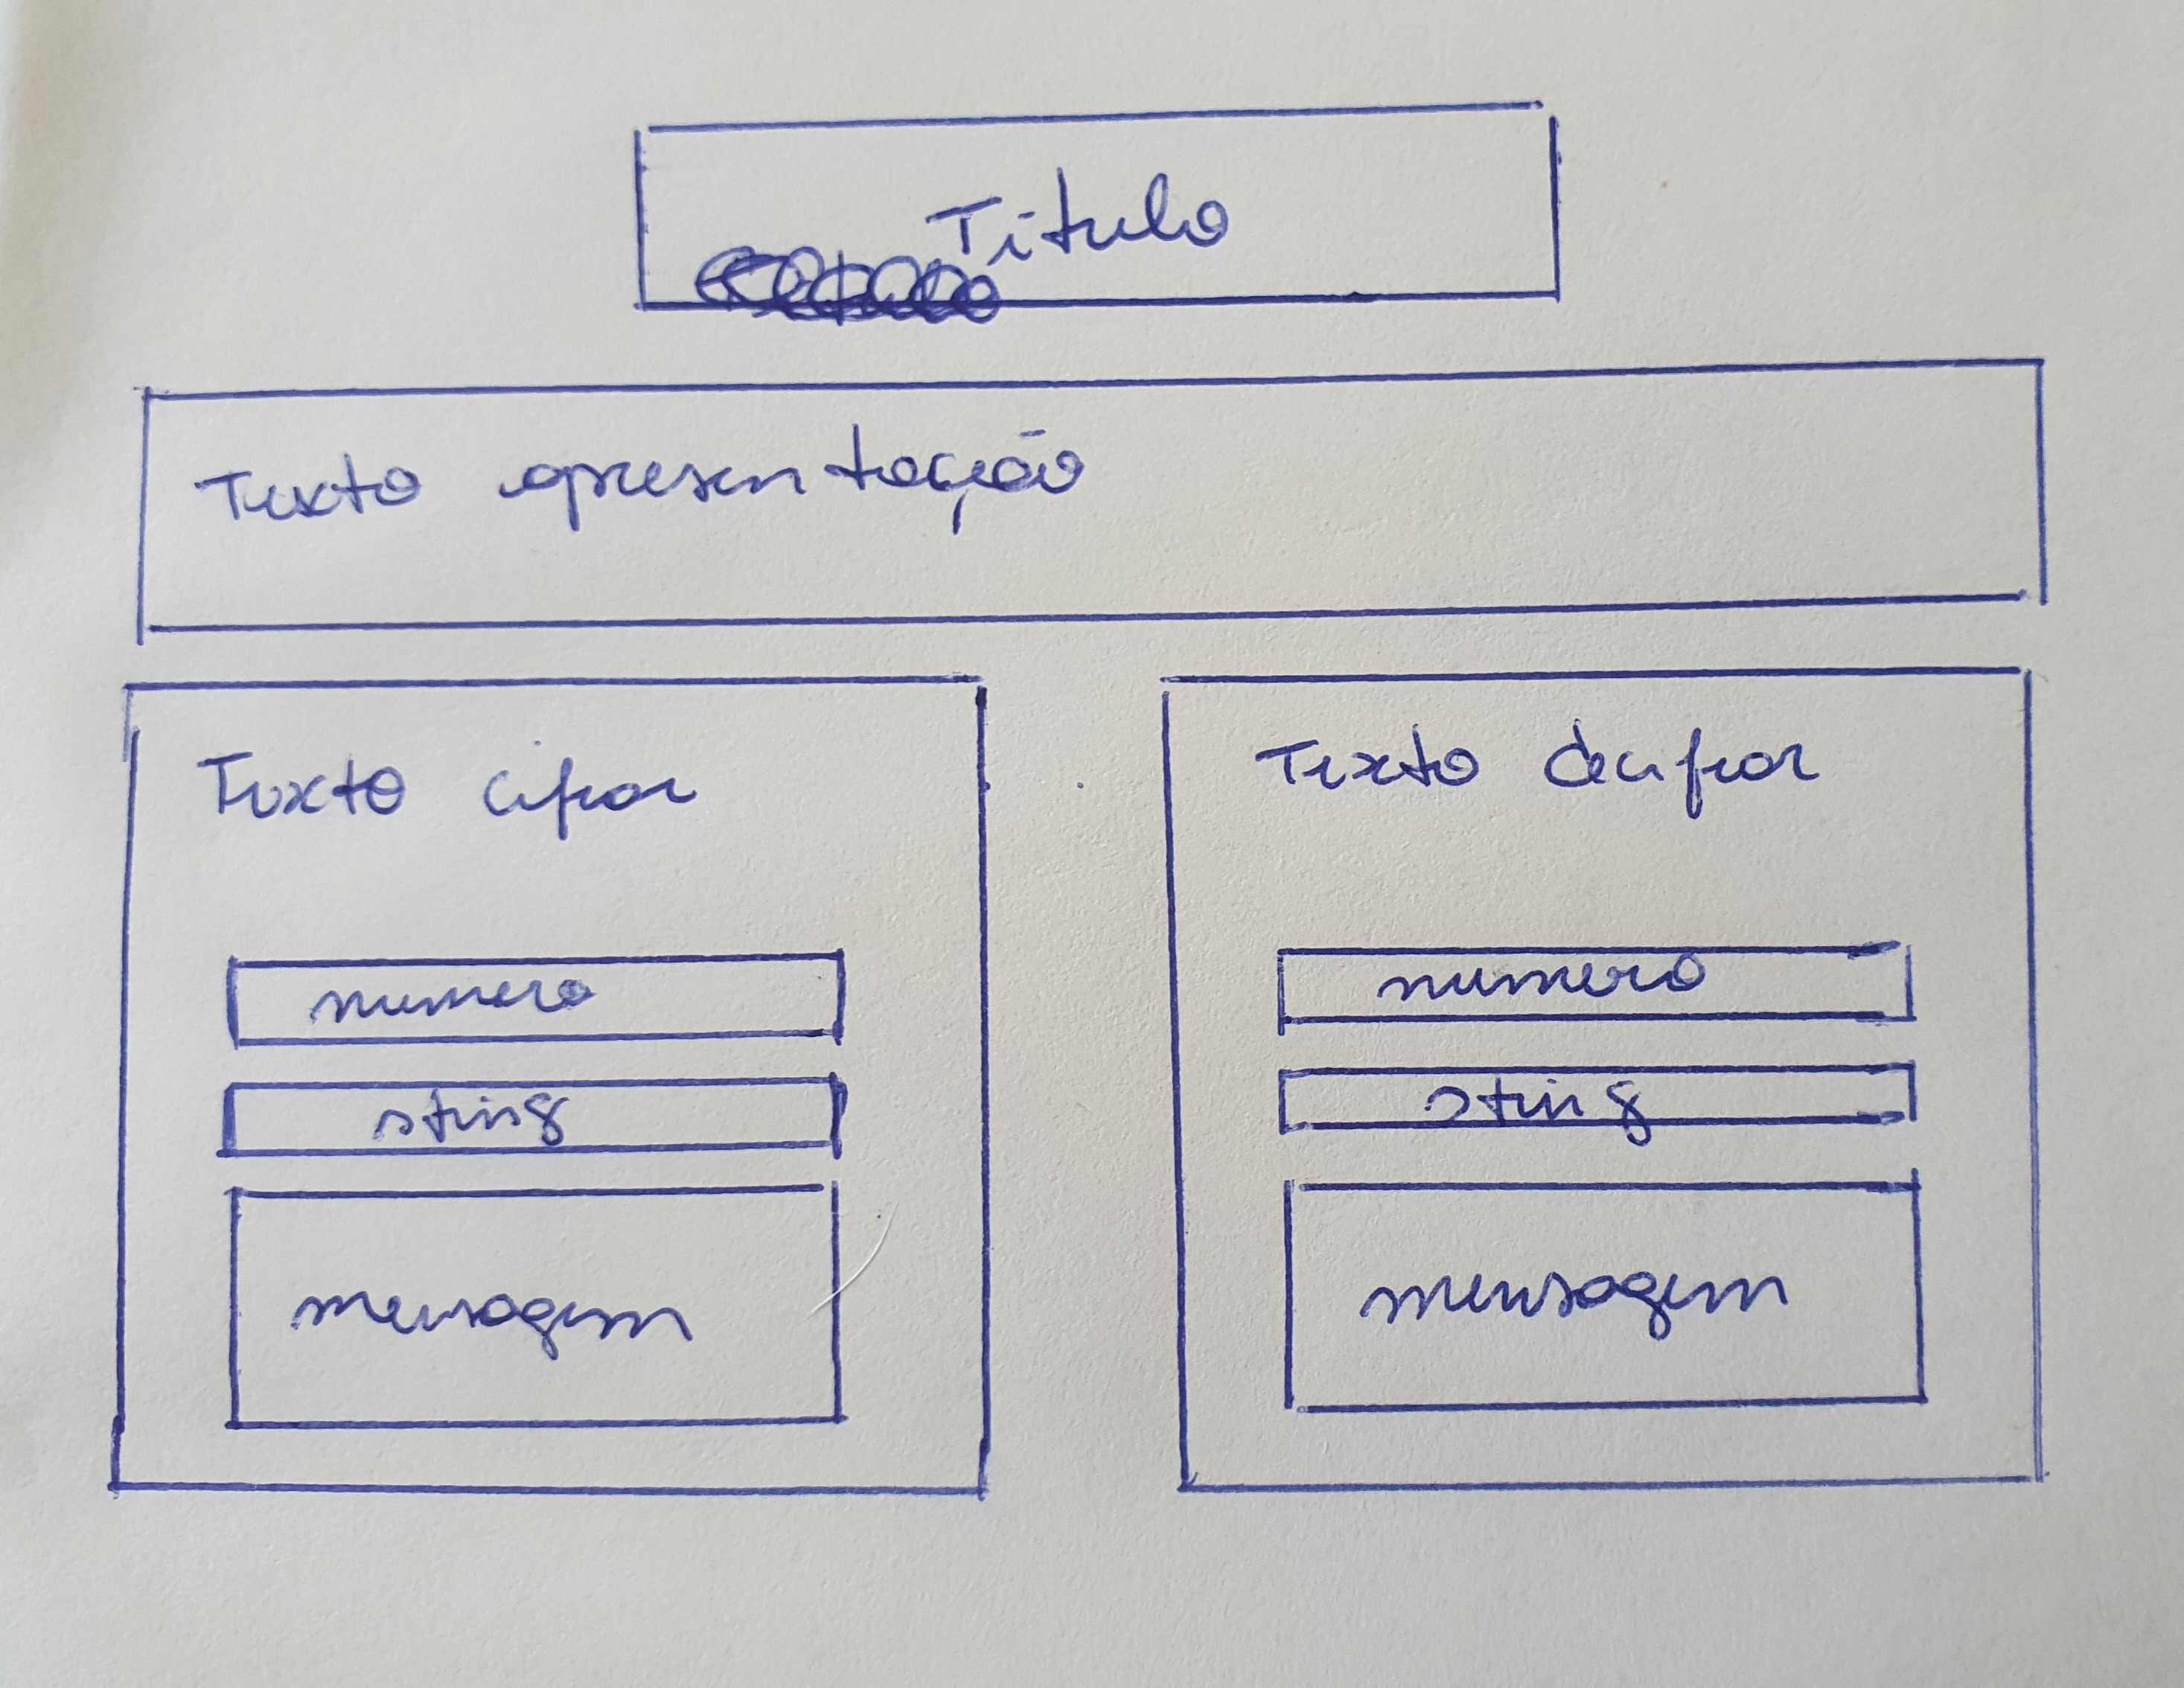 Titulo
Texto apresentação
Texto cifrar
numero
string
mensagem
Texto decifrar
numero
string
mensagem